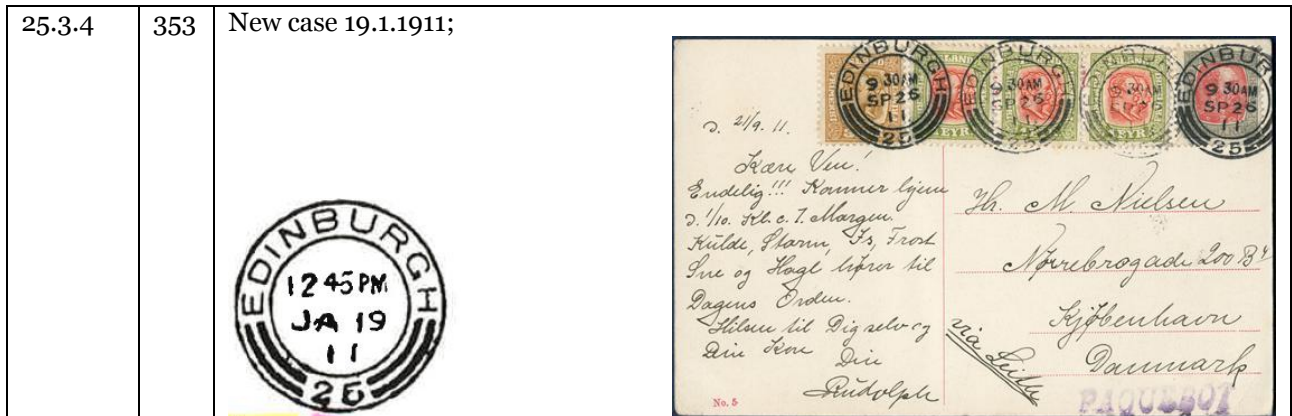 25.3.4
353
New case 19.1.1911;
EDINBURGH
12 45 PM
JA 19
11
25
EDINBURGH
9 30AM
SP 26
11
25
EDINBURGH
9 30AM
SP 26
11
25
EDINBURGH
9 30AM
SP 26
11
25
EYR
EDINBURGH
9 30AM
SP 26
11
25
D. 21/9. 11.
Kære Ven!
Endelig!!! Kommer hjem
D. 1/10. Kl. c. 7. Morgen.
Kulde, Storm, Is, Frost
Sne og Hagl hører til
Dagens Orden.
Hilsen til Dig selv og
Din Kone Din
Rudolph
No. 5
Hr. M. Nielsen
Nørrebrogade 200 B
Kjøbenhavn
Danmark
via Leith
PAQUEBOT